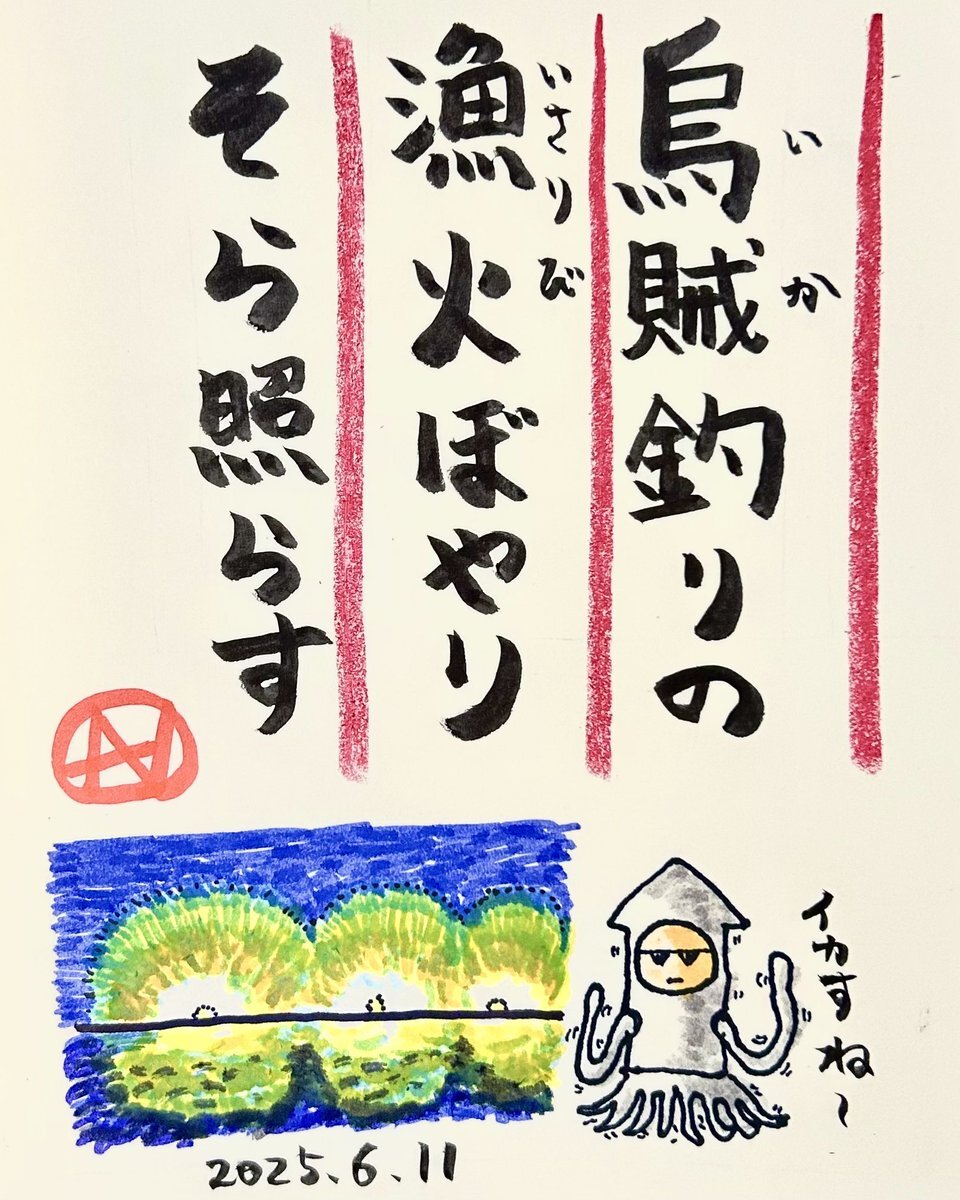 烏賊釣りの
いか
漁火ぼやり
いさりび
そら照らす
イカすね〜
2025.6.11